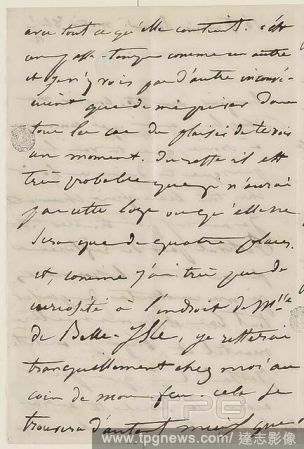 avec tout ce qu'elle contient. c'est
un passe-temps comme un autre
et je n'y vois pas d'autre inconvé-
nient que de me priver dans
tous les cas du plaisir de te voir
un moment. Du reste il est
très probable que je n'aurai
pas cette loge ou qu'elle ne
sera que de quatre places.
et, comme j'ai très peu de
curiosité à l'endroit de Mlle
de Belle-Isle, je resterai
tranquillement chez moi au
coin de mon feu. cela se
trouvera d'autant mieux que
TPG
www.tpgnews.com/達志影像